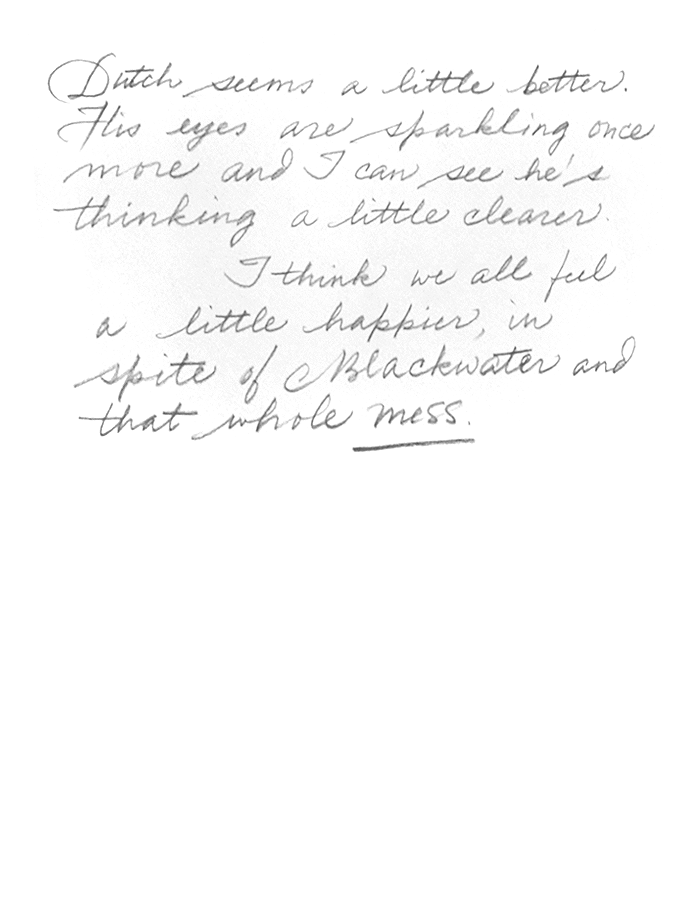 Dutch seems a little better.
His eyes are sparkling once
more and I can see he's
thinking a little clearer.
I think we all feel
a little happier, in
spite of Blackwater and
that whole mess.